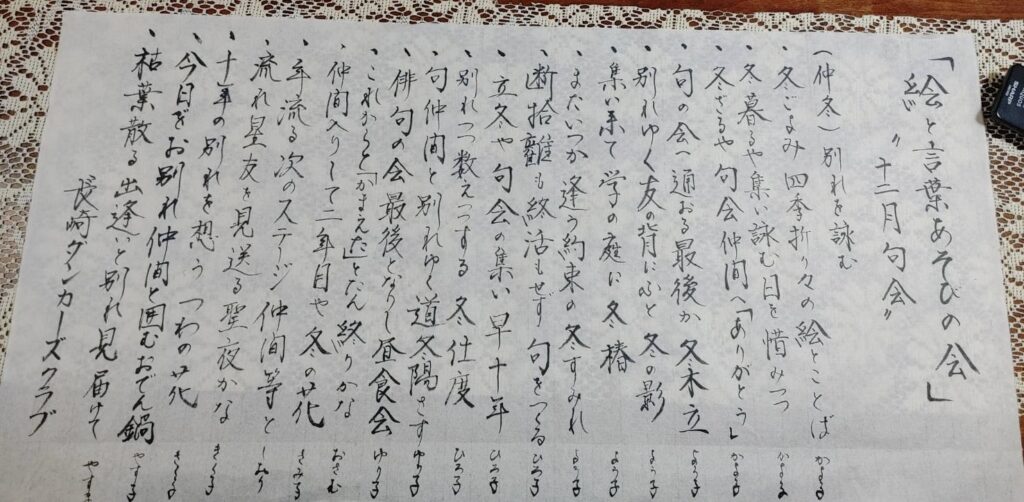 「絵と言葉あそびの会」
〃十二月句会〃
(仲冬)別れを詠む
・冬ごよみ 四季折り々の絵とことば かほる
・冬暮るや集い詠む日を惜みつつ
・冬ざるや句会仲間へ「ありがとう」
・句の会へ通おる最後か 冬木立 よう子
・別れゆく友の背にふと 冬の影 よう子
・集い来て 学の庭に 冬椿 よう子
・またいつか逢う約束の 冬すみれ よう子
・断捨離も終活もせず 句をつくる ひろ子
・立冬や 句会の集い 早十年 ひろ子
・別れつつ数えつつする 冬仕度 ひろ子
・句仲間と別れゆく道 冬陽さす ゆり子
・俳句の会 最後となりし 昼食会 ゆり子
・これからと「かまえた」とたん 終りかな
・仲間入りして 二年目や 冬の花 おさむ
・年流る 次のステージ 仲間等と
・流れ星 友を見送る 聖夜かな
・十年の別れを想う つわの花 きく子
・今日でお別れ 仲間と囲むおでん鍋 きく子
・枯葉散る 出逢いと別れ 見届けて やす子
長崎ダンカーズクラブ